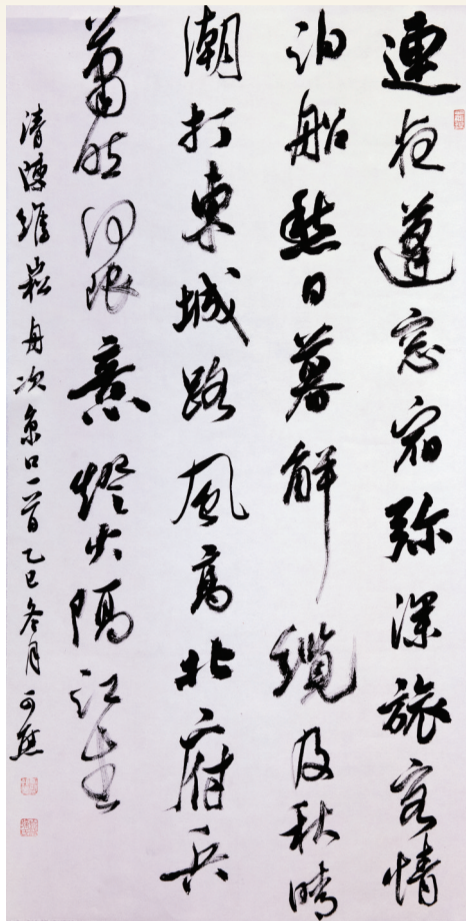 連夜蓬窓宿弥深旅客情
泊船愁日暮解纜及秋晴
潮打東城路風高北府兵
蕭然何限意燈火隔江生
清陳維崧舟次京口一首乙巳冬月可